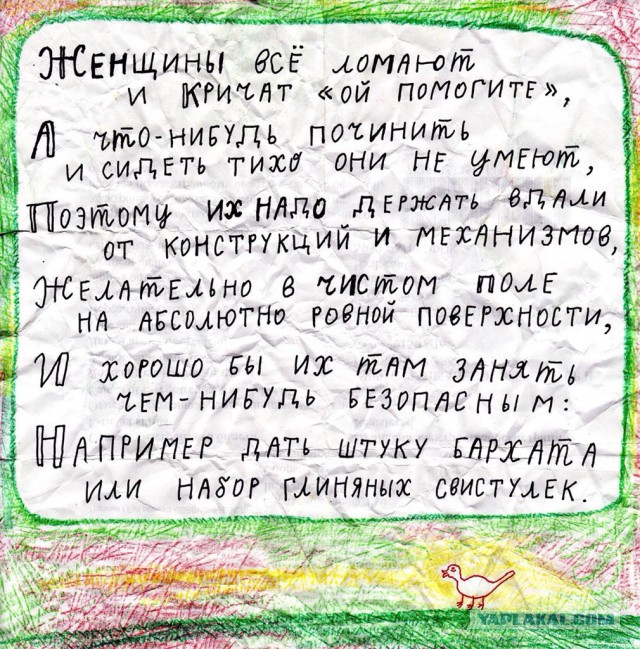 ЖЕНЩИНЫ ВСЁ ЛОМАЮТ
И КРИЧАТ «ОЙ ПОМОГИТЕ»,
А ЧТО-НИБУДЬ ПОЧИНИТЬ
И СИДЕТЬ ТИХО ОНИ НЕ УМЕЮТ,
ПОЭТОМУ ИХ НАДО ДЕРЖАТЬ ВДАЛИ
ОТ КОНСТРУКЦИЙ И МЕХАНИЗМОВ,
ЖЕЛАТЕЛЬНО В ЧИСТОМ ПОЛЕ
НА АБСОЛЮТНО РОВНОЙ ПОВЕРХНОСТИ,
И ХОРОШО БЫ ИХ ТАМ ЗАНЯТЬ
ЧЕМ-НИБУДЬ БЕЗОПАСНЫМ:
НАПРИМЕР ДАТЬ ШТУКУ БАРХАТА
ИЛИ НАБОР ГЛИНЯНЫХ СВИСТУЛЕК.
YAPLAKAL.COM